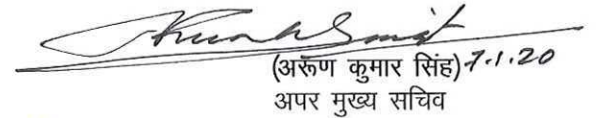 (अरूण कुमार सिंह) 7.1.20
अपर मुख्य सचिव